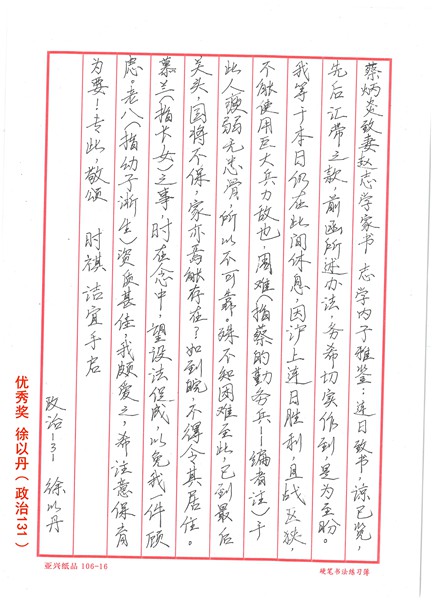 蔡炳炎致妻赵志学家书 志学内子雅鉴：连日致书，谅已览，
先后汇带之款，前函所述办法，务希切实作到，是为至盼。
我等于本日仍在此间休息，因沪上连日胜利，且战区狭，
不能使用巨大兵力故也，周难（指蔡的勤务兵—编者注）于
此人须弱无忠骨，所以不可靠。殊不知困难至此，已到最后
关头，国将不保，家亦焉能存在？如到皖，不得令其居住。
慕兰（指大女）之事，时在念中，望设法促成，以免我一件顾
虑。老八（指幼子浙生）资质甚佳，我颇爱之，希注意保育
为要！专此，敬颂 时祺 洁宜手启
政治131 徐以丹
优秀奖 徐以丹（政治131）
亚兴纸品 106-16
硬笔书法练习簿